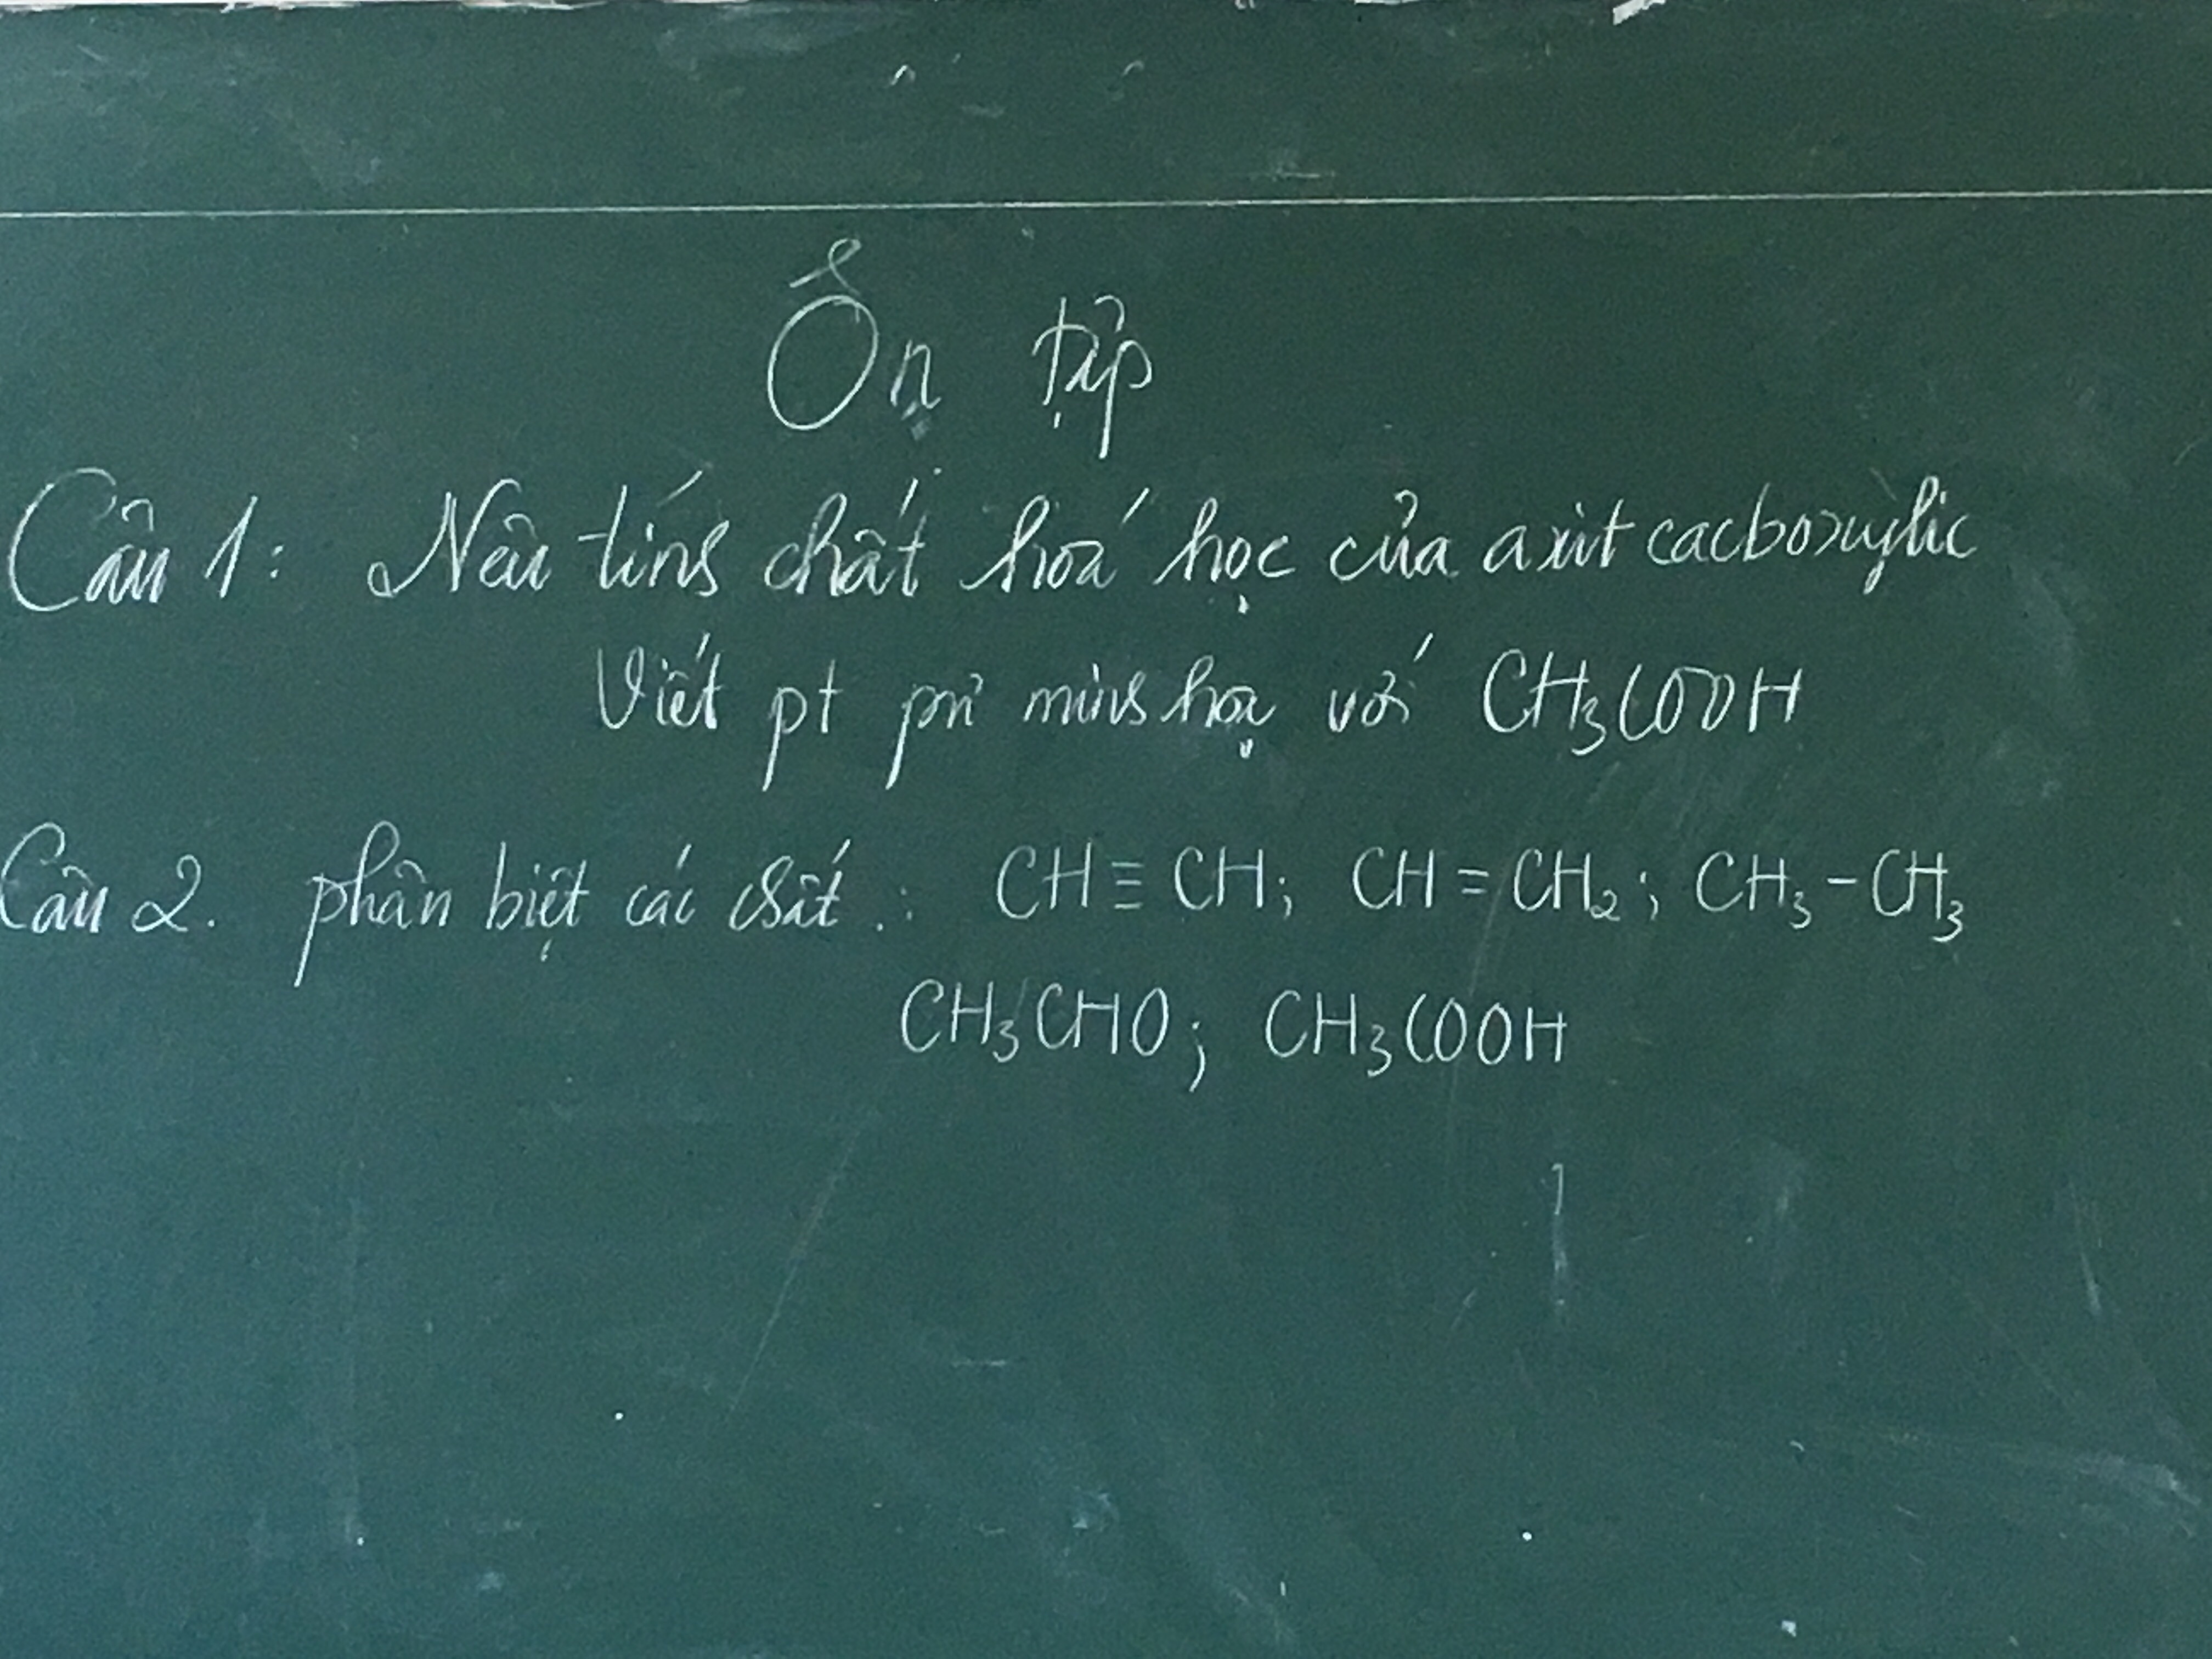 Ôn tập
Câu 1: Nêu tính chất hoá học của axit cacboxylic
Viết pt pư minh hoạ với CH₃COOH
Câu 2. phân biệt các chất : CH ≡ CH; CH = CH₂; CH₃ - CH₃
CH₃CHO; CH₃COOH